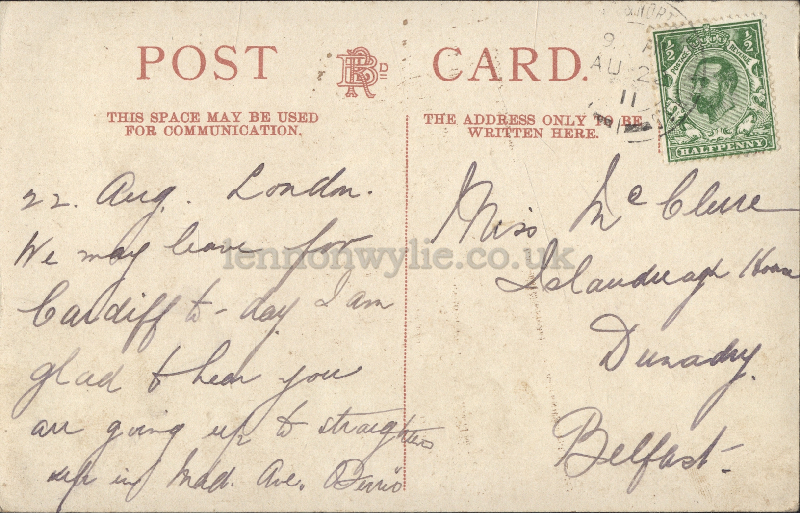 POST
BRRA D
CARD.
THIS SPACE MAY BE USED
FOR COMMUNICATION.
THE ADDRESS ONLY TO BE
WRITTEN HERE.
9
AU 2
11
½ ½
POSTAGE REVENUE
HALFPENNY
22. Aug. London.
We may leave for
Cardiff to-day. I am
glad to hear you
are going up to straighten
up in Mad. Ave.
Miss McClure
Islandreagh House
Dunadry.
Belfast-
lennonwylie.co.uk